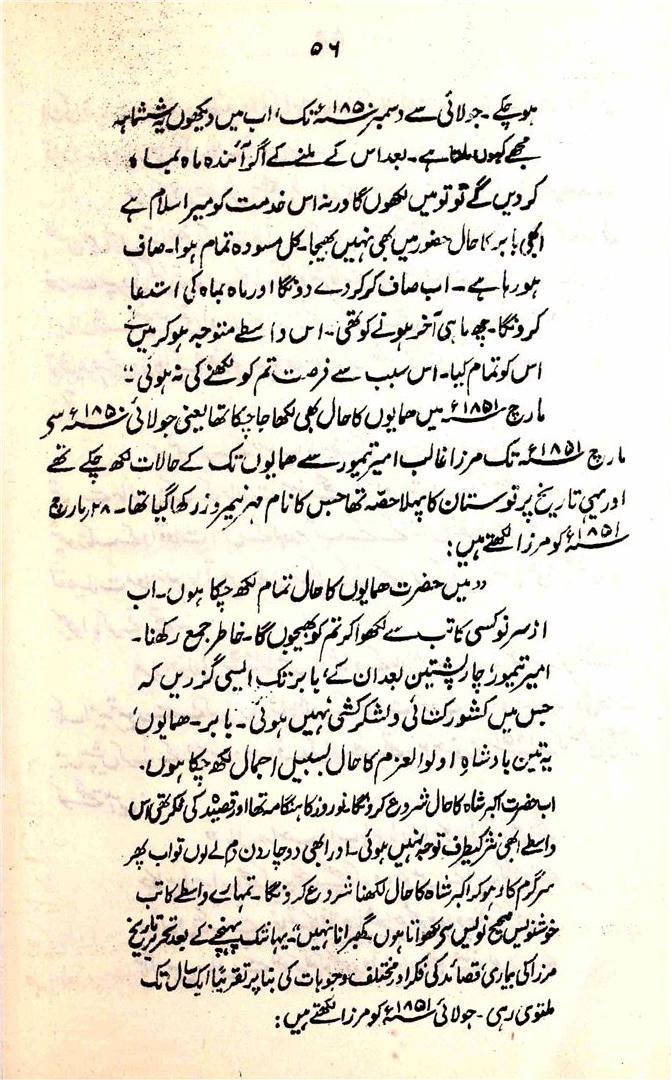 ۵۶
ہو چکے ۔ جولائی سے دسمبر ۱۸۵۰ء تک، اب میں دیکھوں یہ ششماہہ
مجھے کب ملتا ہے ۔ بعد اس کے ملنے کے اگر آئندہ ماہ بماہ
کر دیں گے تو تو میں لکھوں گا ورنہ اس خدمت کو میرا سلام ہے
ابھی بابر کا حال حضور میں بھی نہیں بھیجا ۔ کل مسودہ تمام ہوا ۔ صاف
ہو رہا ہے ۔ اب صاف کر کر دے دونگا اور ماہ بماہ کی استدعا
کرونگا ۔ چھ ماہی آخر ہونے کو تھی ۔ اس واسطے متوجہ ہو کر میں نے
اس کو تمام کیا ۔ اس سبب سے فرصت تم کو لکھنے کی نہ ہوئی ،،
مارچ ۱۸۵۱ء میں ھمایوں کا حال بھی لکھا جا چکا تھا یعنی جولائی ۱۸۵۰ء سے
مارچ ۱۸۵۱ء تک مرزا غالب امیر تیمور سے ھمایوں تک کے حالات لکھ چکے تھے
اور یہی تاریخ پرتوستان کا پہلا حصّہ تھا جس کا نام مہر نیمروز رکھا گیا تھا ۔ ۲۸ مارچ
۱۸۵۱ء کو مرزا لکھتے ہیں :
،، میں حضرت ھمایوں کا حال تمام لکھ چکا ہوں ۔ اب
از سرِ نو کسی کاتب سے لکھوا کر تم کو بھیجوں گا ۔ خاطر جمع رکھنا ۔
امیر تیمور، چار پشتیں بعد ان کے، بابر تک ایسی گزریں کہ
جس میں کشور کشائی و لشکر کشی نہیں ہوئی ۔ بابر ۔ ھمایوں،
یہ تین بادشاہِ اولوالعزم کا حال بسبیل اجمال لکھ چکا ہوں.
اب حضرت اکبر شاہ کا حال شروع کرونگا ۔ نوروز کا ہنگامہ تھا اور قصیدہ کی فکر تھی اس
واسطے ابھی نثر کیطرف توجہ نہیں ہوئی ۔ اور ابھی دو چار دن دم لے لوں تو اب پھر
سرگرم کار ہو کر اکبر شاہ کا حال لکھنا شروع کرونگا ۔ تمہارے واسطے کاتب
خوشنویس صحیح نویس سے لکھواتا ہوں ۔ گھبرانا نہیں ،، ۔ یہانتک پہنچنے کے بعد تحریر تاریخ
مرزا کی بیماری، قصائد کی فکر اور مختلف وجوہات کی بنا پر تقریباً ایک سال تک
ملتوی رہی ۔ جولائی ۱۸۵۱ء کو مرزا لکھتے ہیں :